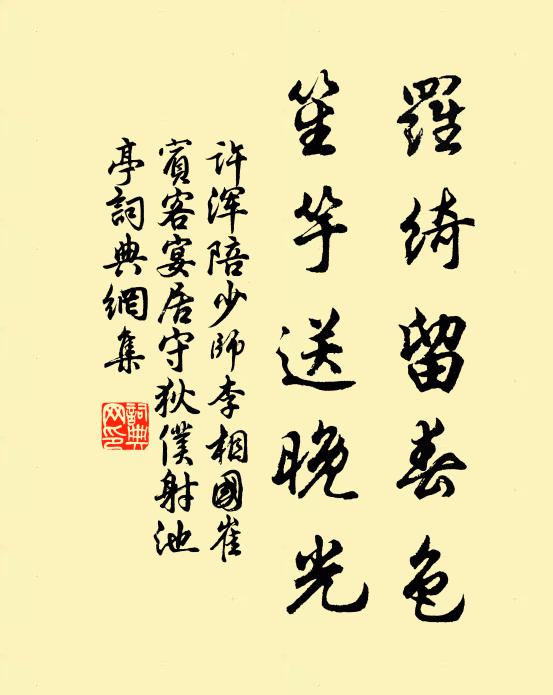 羅綺留春色
笙竽送晚光
許渾陪少師李相國崔
賓客宴居守狄僕射池
亭詞典網集
詞典
网印